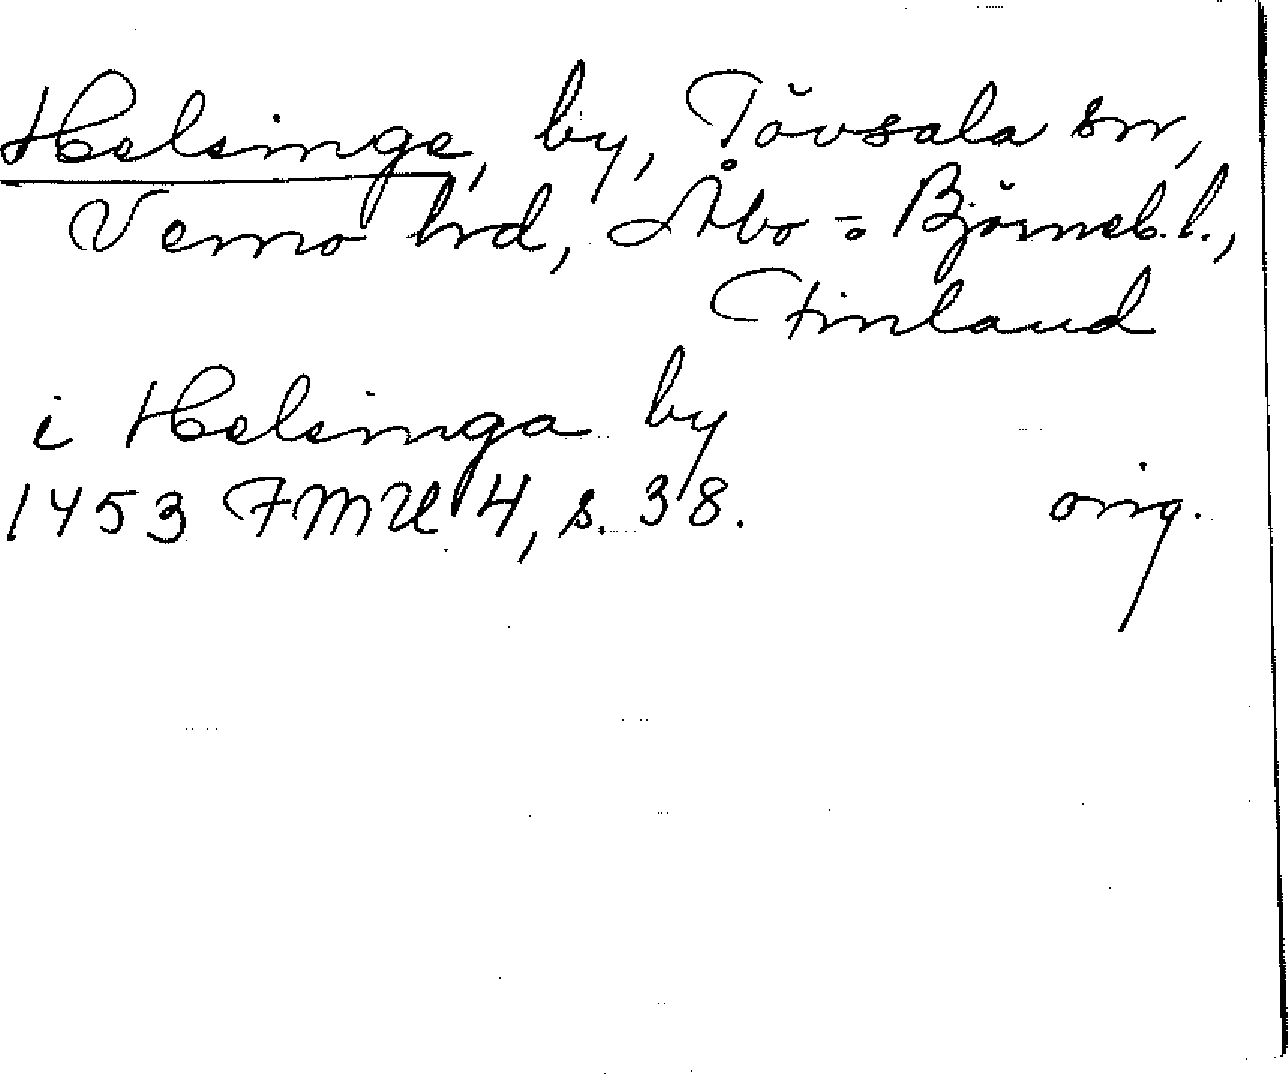 Helsinge, by, Tövsala sn,
Vemo hrd, Åbo-Björneb.l.,
Finland
i Helsinga by
1453 FMU 4, s. 38. orig.